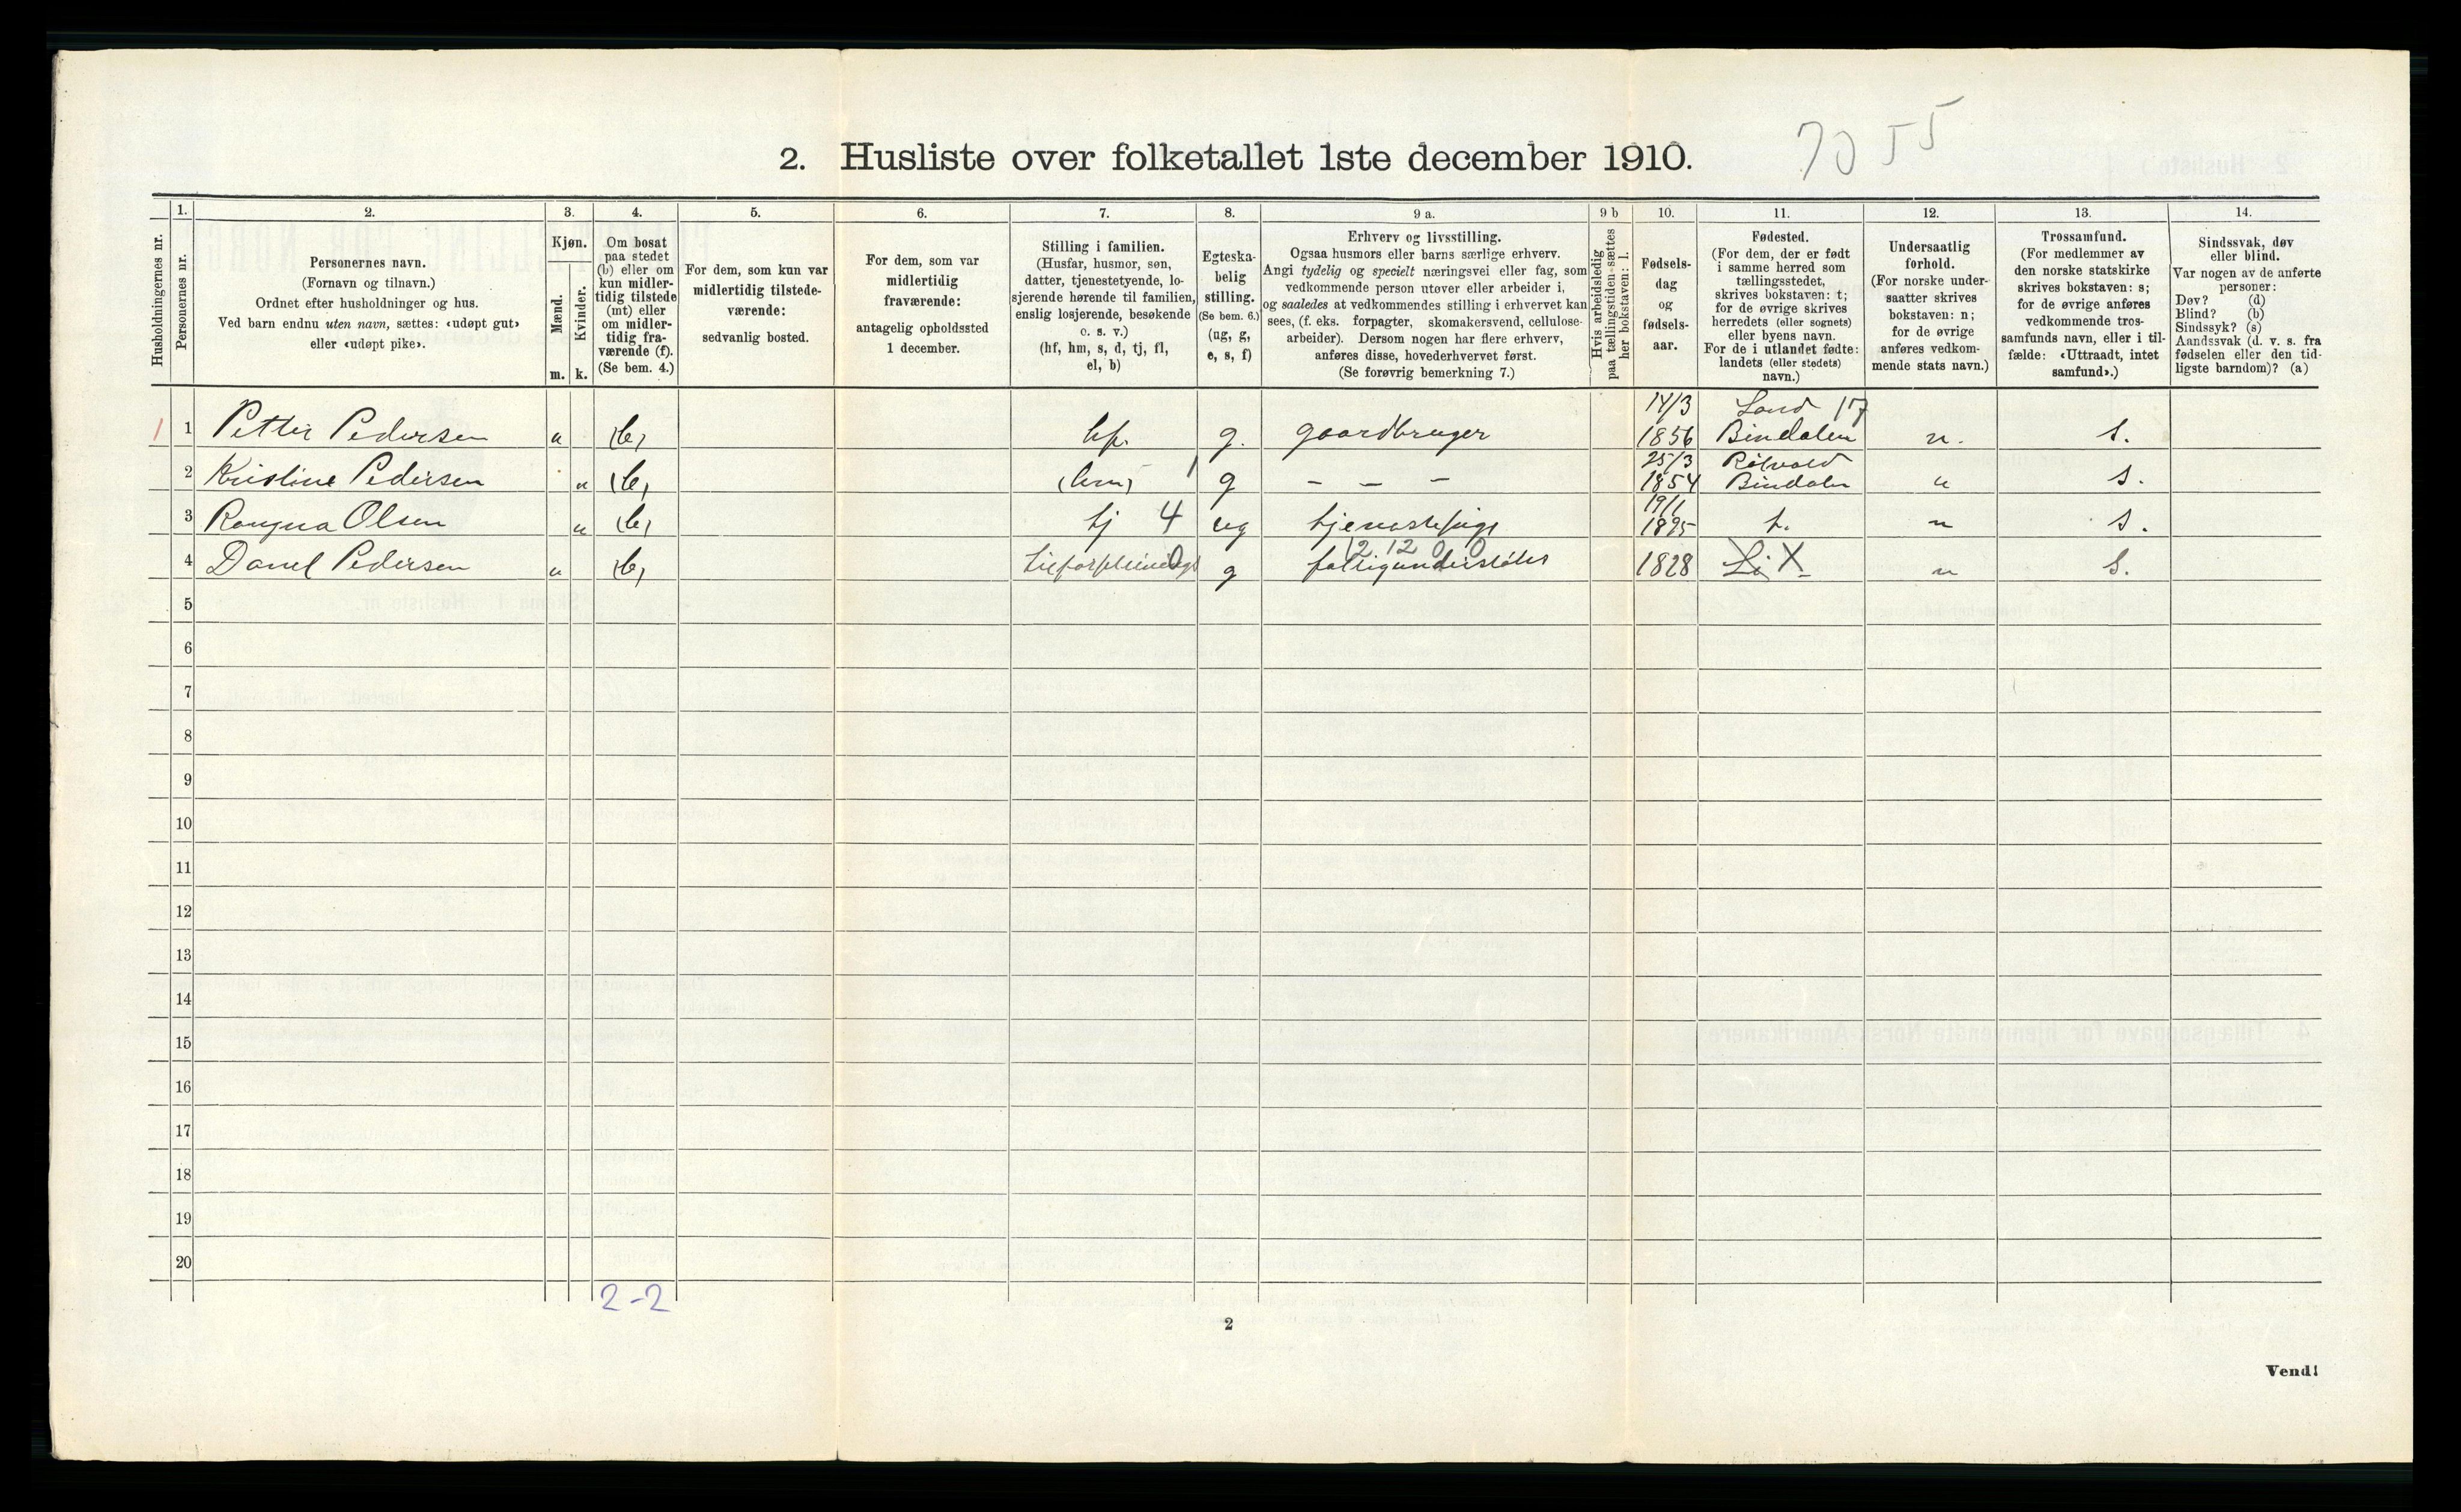 7055
2. Husliste over folketallet 1ste december 1910.
Husholdningernes nr.
1.
Personernes nr.
2.
Personernes navn.
(Fornavn og tilnavn.)
Ordnet efter husholdninger og hus.
Ved barn endnu uten navn, sættes: «udøpt gut»
eller «udøpt pike».
3.
Kjøn.
Mænd.
Kvinder.
m. k.
4.
Om bosat
paa stedet
(b) eller om
kun midler-
tidig tilstede
(mt) eller
om midler-
tidig fra-
værende (f).
(Se bem. 4.)
5.
For dem, som kun var
midlertidig tilstede-
værende:
sedvanlig bosted.
6.
For dem, som var
midlertidig
fraværende:
antagelig opholdssted
1 december.
7.
Stilling i familien.
(Husfar, husmor, søn,
datter, tjenestetyende, lo-
sjerende hørende til familien,
enslig losjerende, besøkende
o. s. v.)
(hf, hm, s, d, tj, fl,
el, b)
8.
Egteska-
belig
stilling.
(Se bem. 6.)
(ug, g,
e, s, f)
9 a.
Erhverv og livsstilling.
Ogsaa husmors eller barns særlige erhverv.
Angi tydelig og specielt næringsvei eller fag, som
vedkommende person utøver eller arbeider i,
og saaledes at vedkommendes stilling i erhvervet kan
sees, (f. eks. forpagter, skomakersvend, cellulose-
arbeider). Dersom nogen har flere erhverv,
anføres disse, hovederhvervet først.
(Se forøvrig bemerkning 7.)
9 b
Hvis arbeidsledig
paa tællingstiden sættes
her bokstaven: l.
10.
Fødsels-
dag
og
fødsels-
aar.
11.
Fødested.
(For dem, der er født
i samme herred som
tællingsstedet,
skrives bokstaven: t;
for de øvrige skrives
herredets (eller sognets)
eller byens navn.
For de i utlandet fødte:
landets (eller stedets)
navn.)
12.
Undersaatlig
forhold.
(For norske under-
saatter skrives
bokstaven: n;
for de øvrige
anføres vedkom-
mende stats navn.)
13.
Trossamfund.
(For medlemmer av
den norske statskirke
skrives bokstaven: s;
for de øvrige anføres
vedkommende tros-
samfunds navn, eller i til-
fælde: «Uttraadt, intet
samfund».)
14.
Sindssvak, døv
eller blind.
Var nogen av de anførte
personer:
Døv? (d)
Blind? (b)
Sindssyk? (s)
Aandssvak (d. v. s. fra
fødselen eller den tid-
ligste barndom)? (a)
14/3 17
1 1 Petter Pedersen (b) hf. g. gaardbruger 1856 Bindalen n. s.
25/3
2 Kristine Pedersen (hm) g – – – 1854 Bindalen s.
19/1
3 Olsen (b) tj 4 ug 1895 t. s.
12.12 0 0
4 Pedersen (b) g 1828 X s.
5
6
7
8
9
10
11
12
13
14
15
16
17
18
19
20
2-2
2
Vend!